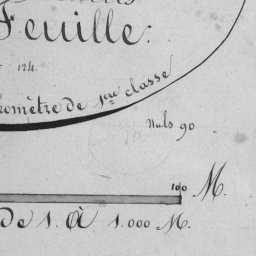 Feuille:
124.
éomètre de 1ere classe
Nuls 90
100 M.
de 1. À 1.000 M.